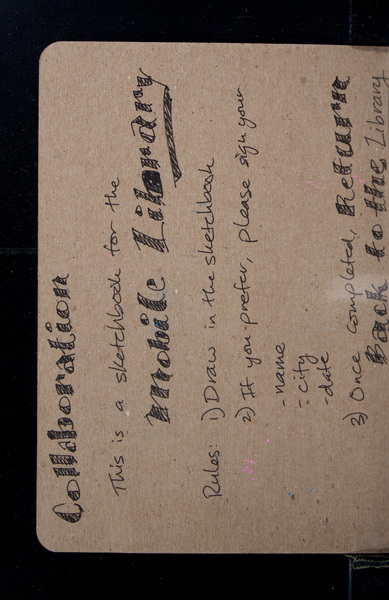 Collaboration
This is a sketchbook for the
Mobile Library
Rules: 1) Draw in the sketchbook
2) If you prefer, please sign your
- name
- city
- date
3) Once completed, Return
Back to the Library